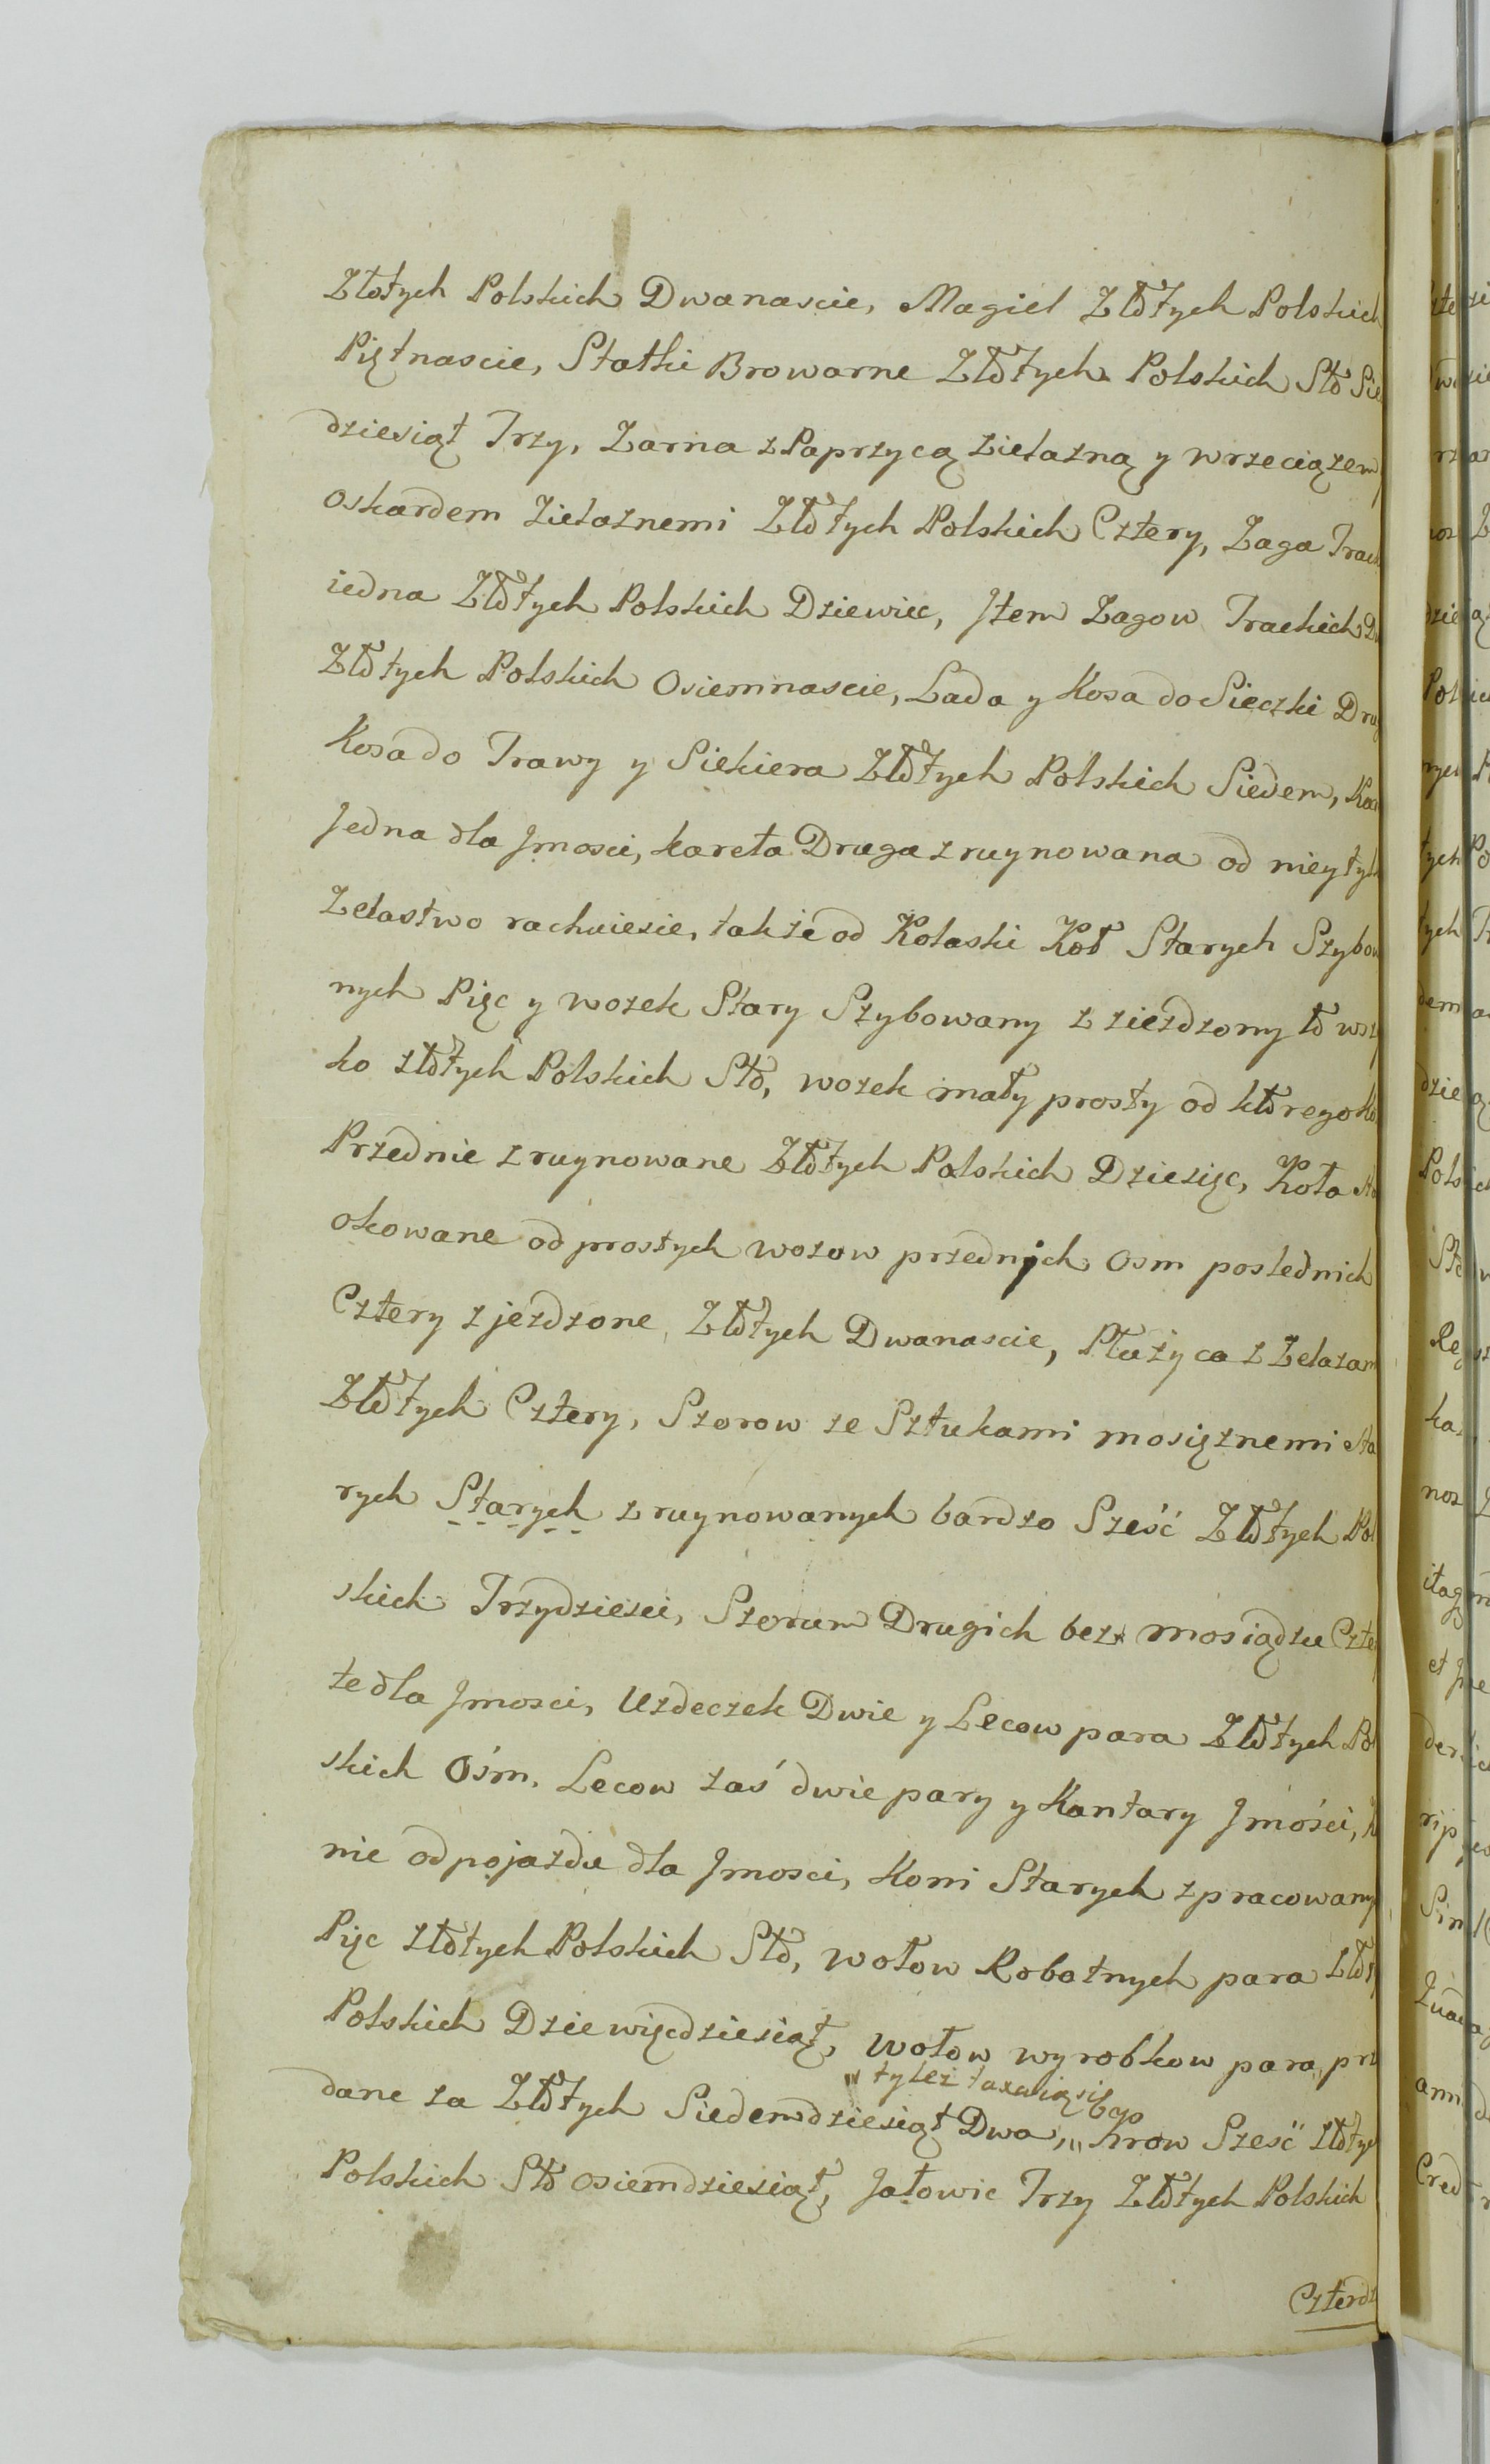 Złotych Polskich Dwanascie, Magiel Złotych Polskich
Piętnascie, Statki Browarne Złotych Polskich Sto Sie
dziesiąt Trzy, Zarna z Paprzycą zielazną y wrzeciązem
oskardem Zielaznemi Złotych Polskich Cztery, Zaga Trac
iedna Złotych Polskich Dziewiec, Jtem Zagow Trackich D
Złotych Polskich Osiemnascie, Lada y Kosa do Sieczki Dru
Kosa do Trawy y Siekiera Złotych Polskich Siedem, Ka
Jedna dla Jmosci, kareta Druga zruynowana od niey tyl
Zelastwo rachuiesie, takze od Kolaski Koł Starych Szybow
nych Pięc y wozek Stary Szybowany z ziezdzony to wsz
ko złotych Polskich Sto, wozek mały prosty od ktorego ko
Przednie zruynowane Złotych Polskich Dziesięc, Koła
okowane od prostych wozow przednich osm poslednich
Cztery zjezdzone, Złotych Dwanascie, Płużyca z Zelazam
Złotych Cztery, Szorow ze Sztukami mosięznemi sta
rych Starych zruynowanych bardzo Sześć Złotych Pol
skich Trzydziesci, Szorum Drugich bez mosiądzu Czte
te dla Jmosci, Uzdeczek Dwie y Lecow para Złotych Pol
skich Ośm. Lecow zaś dwie pary y Kantary Jmości, K
nie od pojazdu dla Jmosci, Koni Starych zpracowany
Pięc złotych Polskich Sto, wołow Robotnych para Złot
Polskich Dziewięcdziesiąt, wołow wyrobkow para prze
"tylez taxuią się
dane za Złotych Siedemdziesiąt Dwa," Krow Sześć złotyc
Polskich Sto osiemdziesiąt, Jałowic Trzy Złotych Polskich
Czterdz